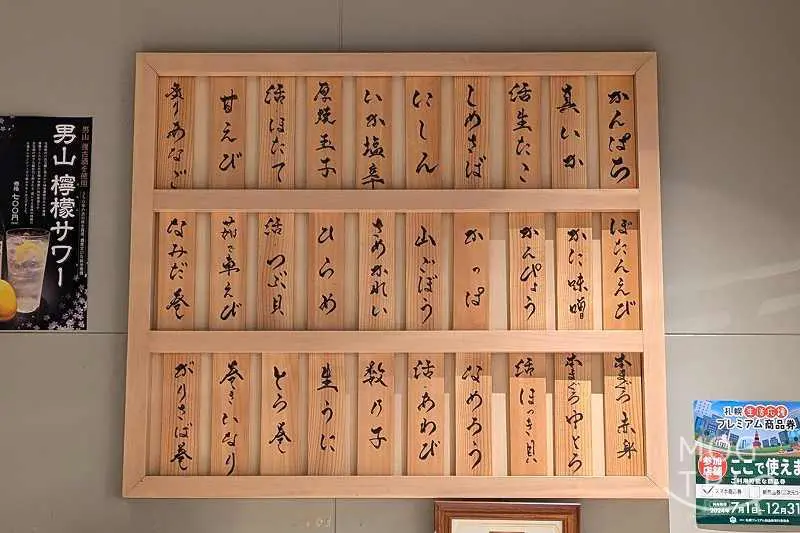 かんぱち
真いか
活生たこ
しめさば
にしん
いか塩辛
厚焼玉子
活ほたて
甘えび
炙りあなご
ぼたんえび
かに味噌
かんぴょう
かっぱ
山ごぼう
さめかれい
ひらめ
活つぶ貝
茹で車えび
なみだ巻
本まぐろ赤身
本まぐろ中とろ
活ほっき貝
なめろう
活あわび
数の子
生うに
とろ巻
巻きいなり
がりさば巻
男山 檸檬サワー
男山 復古酒を使用
価格 七〇〇円
札幌生活応援
プレミアム商品券
参加店舗
ここで使えま
ご利用可能な商品券
スマホ商品券
2024年7月1日~12月31